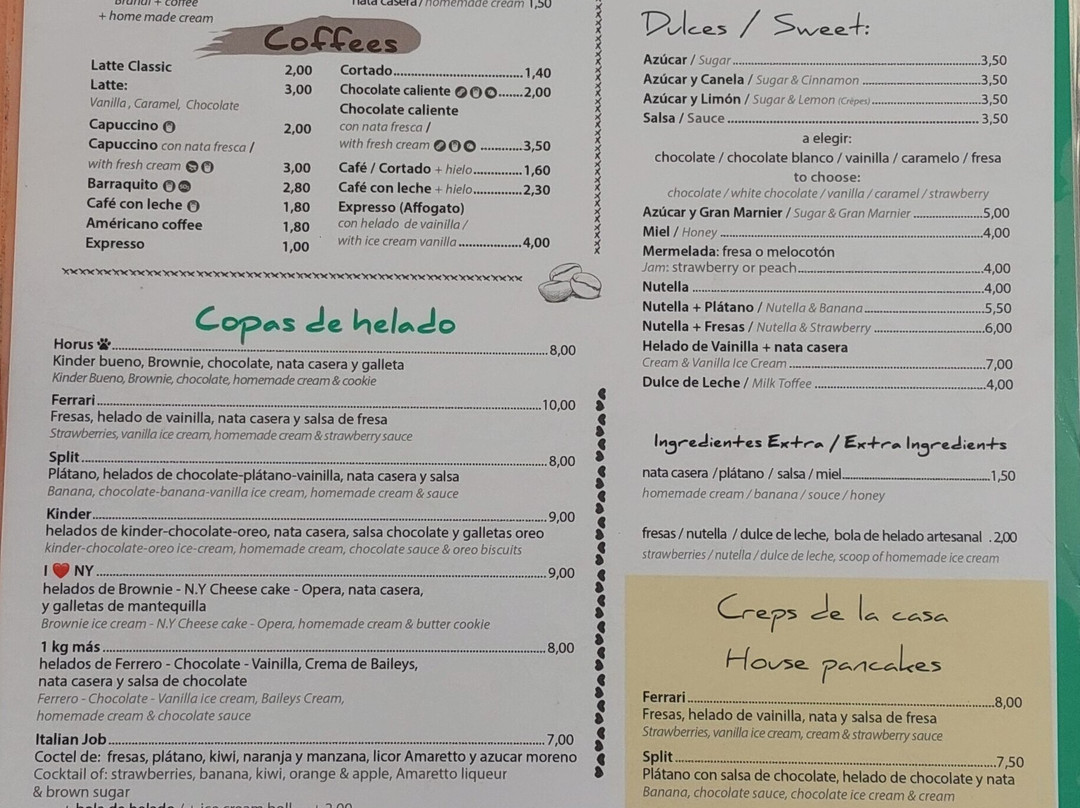 + home made cream
nata casera / homemade cream 1,50
Coffees
Latte Classic 2,00
Latte: 3,00
Vanilla, Caramel, Chocolate
Capuccino 2,00
Capuccino con nata fresca /
with fresh cream 3,00
Barraquito 2,80
Café con leche 1,80
Américano coffee 1,80
Expresso 1,00
Cortado 1,40
Chocolate caliente 2,00
Chocolate caliente
con nata fresca /
with fresh cream 3,50
Café / Cortado + hielo 1,60
Café con leche + hielo 2,30
Expresso (Affogato)
con helado de vainilla /
with ice cream vanilla 4,00
Copas de helado
Horus 8,00
Kinder bueno, Brownie, chocolate, nata casera y galleta
Kinder Bueno, Brownie, chocolate, homemade cream & cookie
Ferrari 10,00
Fresas, helado de vainilla, nata casera y salsa de fresa
Strawberries, vanilla ice cream, homemade cream & strawberry sauce
Split 8,00
Plátano, helados de chocolate-plátano-vainilla, nata casera y salsa
Banana, chocolate-banana-vanilla ice cream, homemade cream & sauce
Kinder 9,00
helados de kinder-chocolate-oreo, nata casera, salsa chocolate y galletas oreo
kinder-chocolate-oreo ice-cream, homemade cream, chocolate sauce & oreo biscuits
I ❤ NY 9,00
helados de Brownie - N.Y Cheese cake - Opera, nata casera,
y galletas de mantequilla
Brownie ice cream - N.Y Cheese cake - Opera, homemade cream & butter cookie
1 kg más 8,00
helados de Ferrero - Chocolate - Vainilla, Crema de Baileys,
nata casera y salsa de chocolate
Ferrero - Chocolate - Vanilla ice cream, Baileys Cream,
homemade cream & chocolate sauce
Italian Job 7,00
Coctel de: fresas, plátano, kiwi, naranja y manzana, licor Amaretto y azucar moreno
Cocktail of: strawberries, banana, kiwi, orange & apple, Amaretto liqueur
& brown sugar
Dulces / Sweet:
Azúcar / Sugar 3,50
Azúcar y Canela / Sugar & Cinnamon 3,50
Azúcar y Limón / Sugar & Lemon (Crêpes) 3,50
Salsa / Sauce 3,50
a elegir:
chocolate / chocolate blanco / vainilla / caramelo / fresa
to choose:
chocolate / white chocolate / vanilla / caramel / strawberry
Azúcar y Gran Marnier / Sugar & Gran Marnier 5,00
Miel / Honey 4,00
Mermelada: fresa o melocotón
Jam: strawberry or peach 4,00
Nutella 4,00
Nutella + Plátano / Nutella & Banana 5,50
Nutella + Fresas / Nutella & Strawberry 6,00
Helado de Vainilla + nata casera
Cream & Vanilla Ice Cream 7,00
Dulce de Leche / Milk Toffee 4,00
Ingredientes Extra / Extra Ingredients
nata casera /plátano / salsa / miel 1,50
homemade cream / banana / souce / honey
fresas / nutella / dulce de leche, bola de helado artesanal . 2,00
strawberries / nutella / dulce de leche, scoop of homemade ice cream
Creps de la casa
House pancakes
Ferrari 8,00
Fresas, helado de vainilla, nata y salsa de fresa
Strawberries, vanilla ice cream, cream & strawberry sauce
Split 7,50
Plátano con salsa de chocolate, helado de chocolate y nata
Banana, chocolate sauce, chocolate ice cream & cream